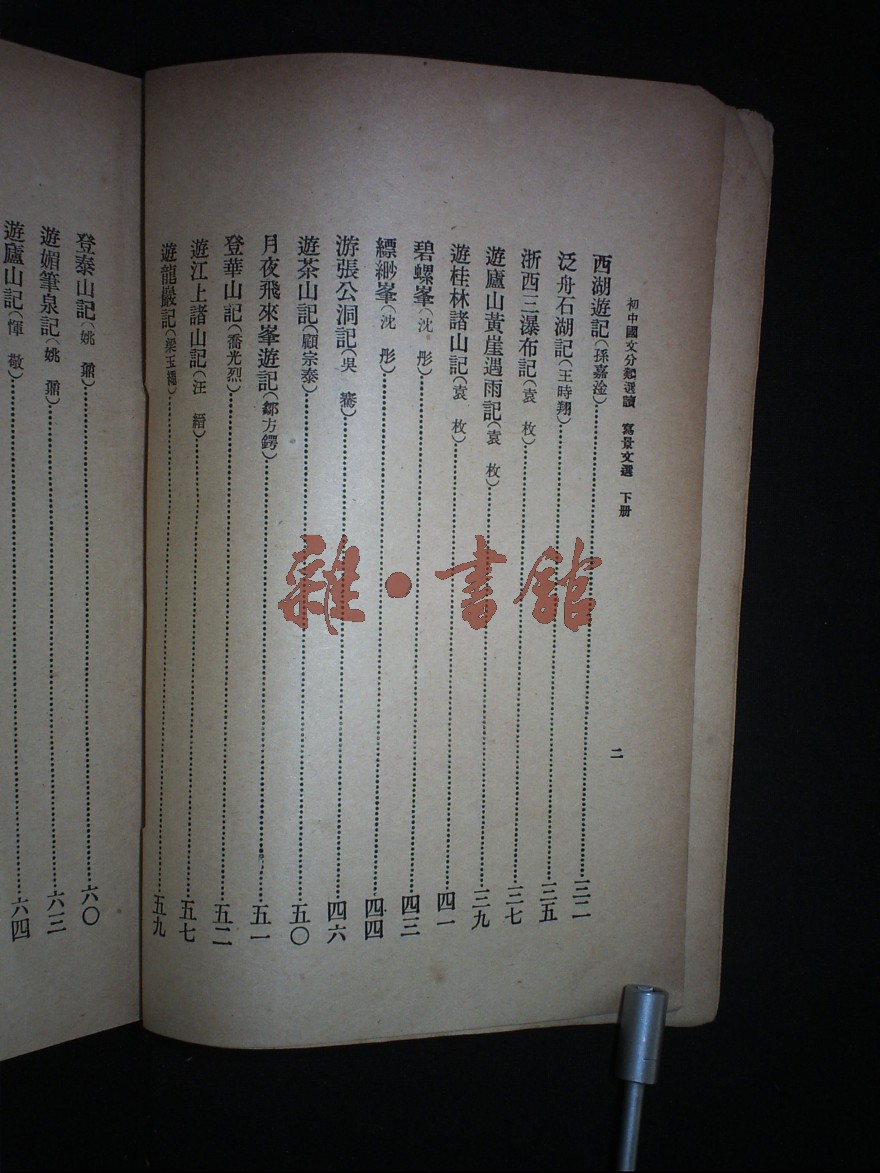 初中國文分類選讀 寫景文選 下册
西湖遊記（孫嘉淦）…三二
泛舟石湖記（王時翔）…三五
浙西三瀑布記（袁 枚）…三七
遊廬山黃崖遇雨記（袁 枚）…三九
遊桂林諸山記（袁 枚）…四一
碧螺峯（沈 彤）…四三
縹緲峯（沈 彤）…四四
游張公洞記（吳 騫）…四六
遊茶山記（顧宗泰）…五〇
月夜飛來峯遊記（鄒方鍔）…五一
登華山記（喬光烈）…五二
遊江上諸山記（汪 縉）…五七
遊龍巖記（梁玉繩）…五九
二
登泰山記（姚 鼐）…六〇
遊媚筆泉記（姚 鼐）…六三
遊廬山記（惲 敬）…六四
雜·書館